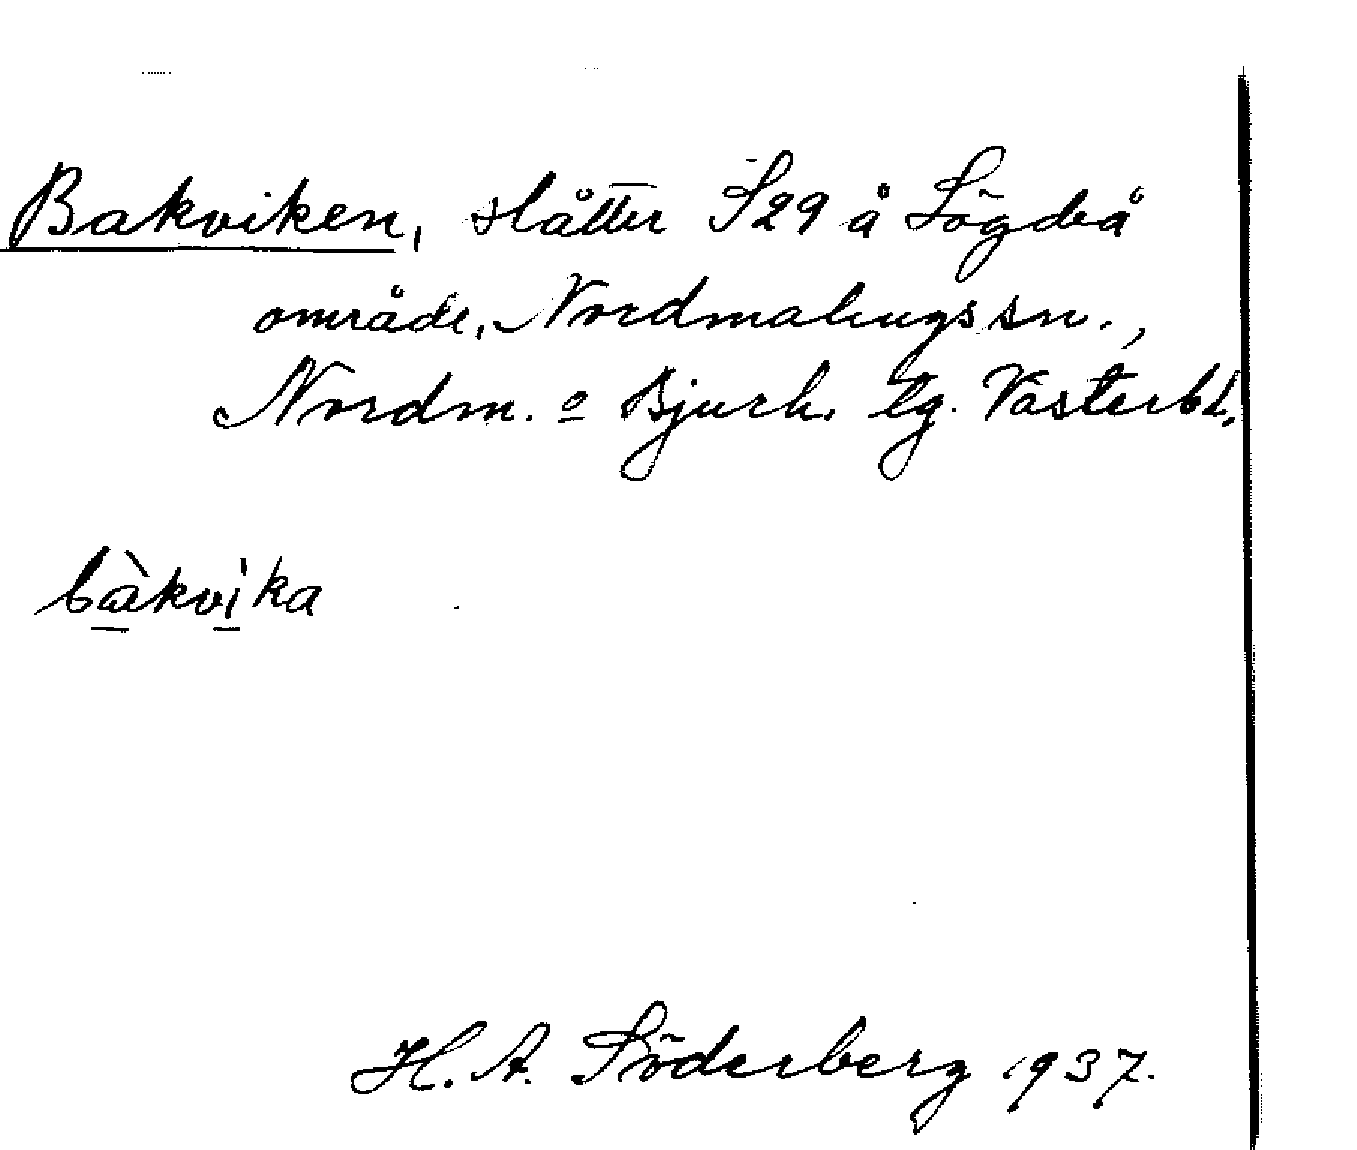 Bakviken, slåtter S29 å Lögdeå
område, Nordmalingssn.,
Nordm. o Bjurh. tg. Västerbl.
bàkvika
H. A. Söderberg 1937.